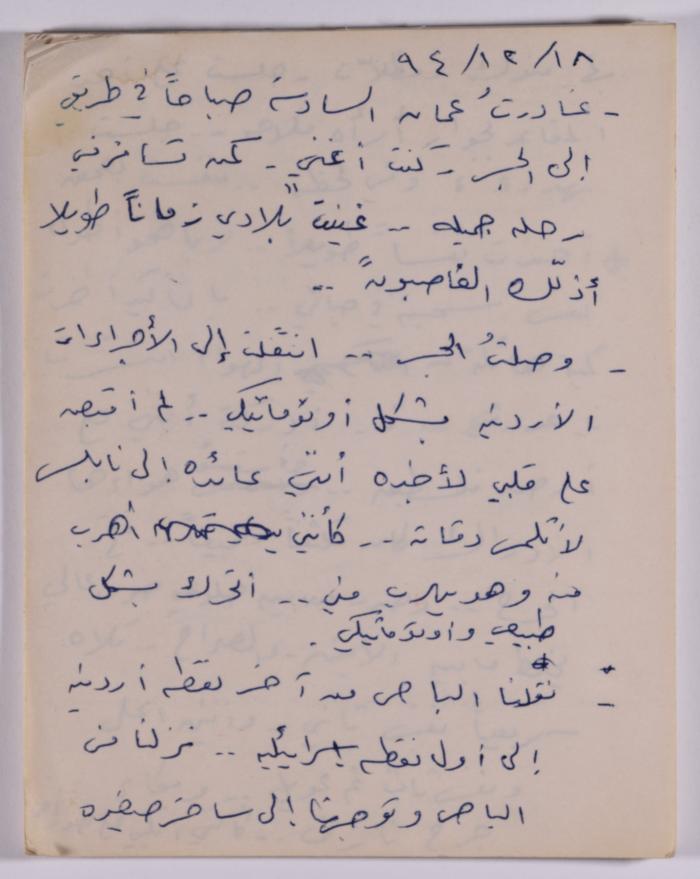 ٩٤/١٢/١٨
- غادرتُ عمان السادسة صباحاً في طريقي
إلى الجسر - كنت أغني - كمن تسافر في
رحلة جميلة .. غنيت "بلادي زماناً طويلا
أذلّك الغاصبون" ..
- وصلتُ الجسر .. انتقلت إلى الأجراءات
الأردنية بشكل أوتوماتيكي .. لم أقبض
على قلبي لأخبره أنني عائده إلى نابلس
لأتلمس دقاته .. كأنني أهرب
منه وهو يهرب مني .. اتحرك بشكل
طبيعي وأوتوماتيكي .
- نقلنا الباص من آخر نقطه أردنيه
إلى أول نقطه إسرائيليه .. نزلنا من
الباص وتوجهنا إلى ساحه صغيره